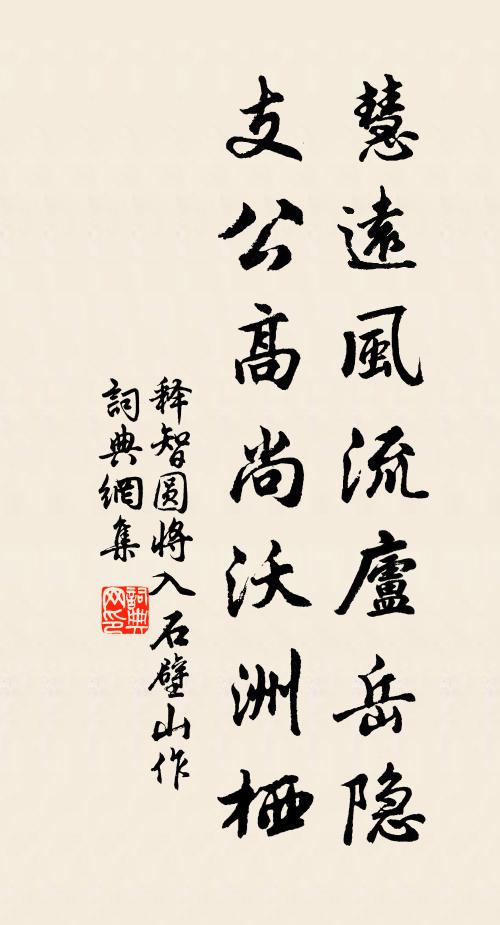 慧遠風流廬岳隐
支公高尚沃洲栖
释智圆将入石壁山作
詞典網集
詞典网印